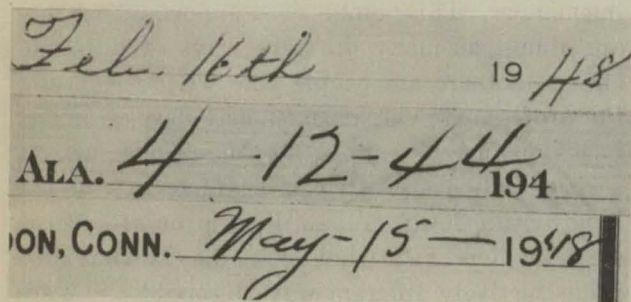 Feb. 16th 1948
ALA. 4-12-44 194
DON, CONN. May-15-1948